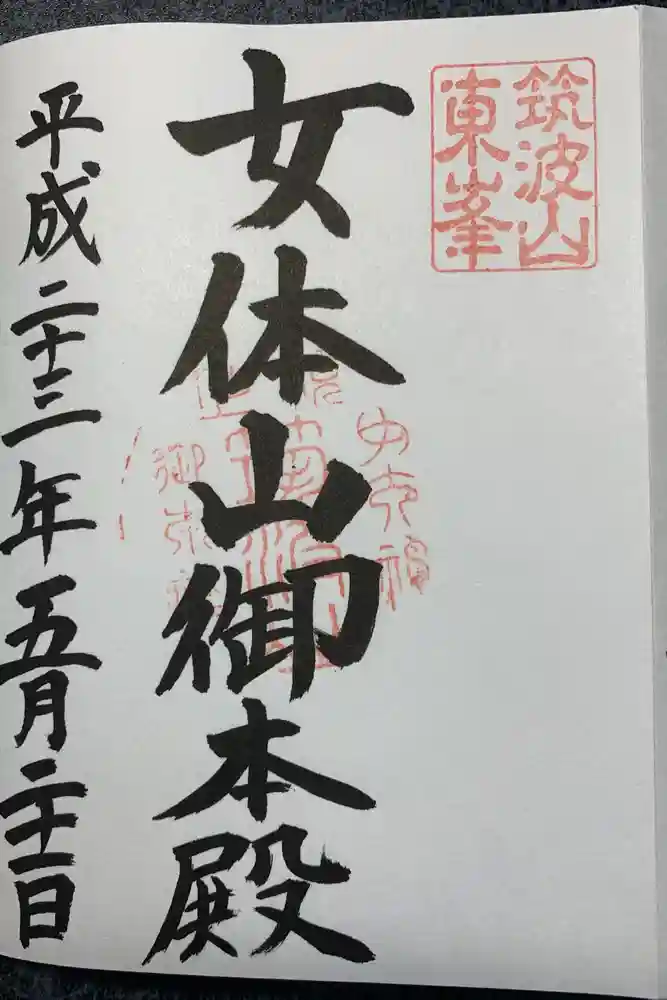 筑波山
東峯
女体山御本殿
平成二十三年五月二十一日